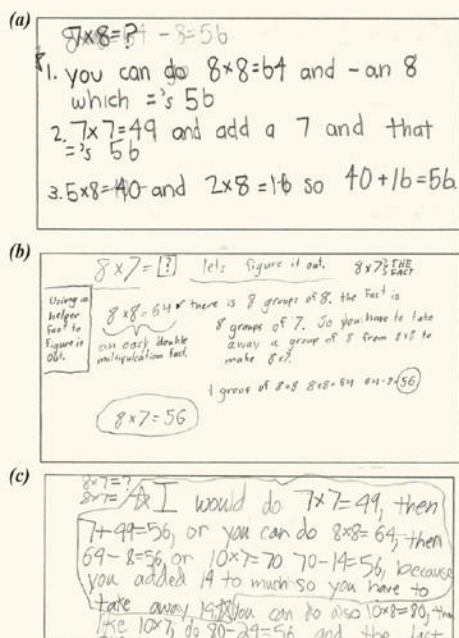 (a)
7x8=? 64 - 8=56
1. you can do 8x8=64 and -an 8
which ='s 56
2. 7x7=49 and add a 7 and that
='s 56
3. 5x8=40 and 2x8=16 so 40+16=56
(b)
8x7=? lets figure it out. 8x7 IS THE FACT
Using a
helper
fact to
figure it
out.
8x8=64 there is 8 groups of 8. the fact is
an easy double
multiplication fact.
8 groups of 7. So you have to take
away a group of 8 from 8x8 to
make 8x7.
1 group of 8=8 8x8=64 64-8=56
8x7=56
(c)
8x7=?
8x7= I would do 7x7=49, then
7+49=56, or you can do 8x8=64, then
64-8=56, or 10x7=70 70-14=56, because
you added 14 to much so you have to
take away 14. you can do also 10x8=80, then
like 10x7, do 80-24=56 and the last